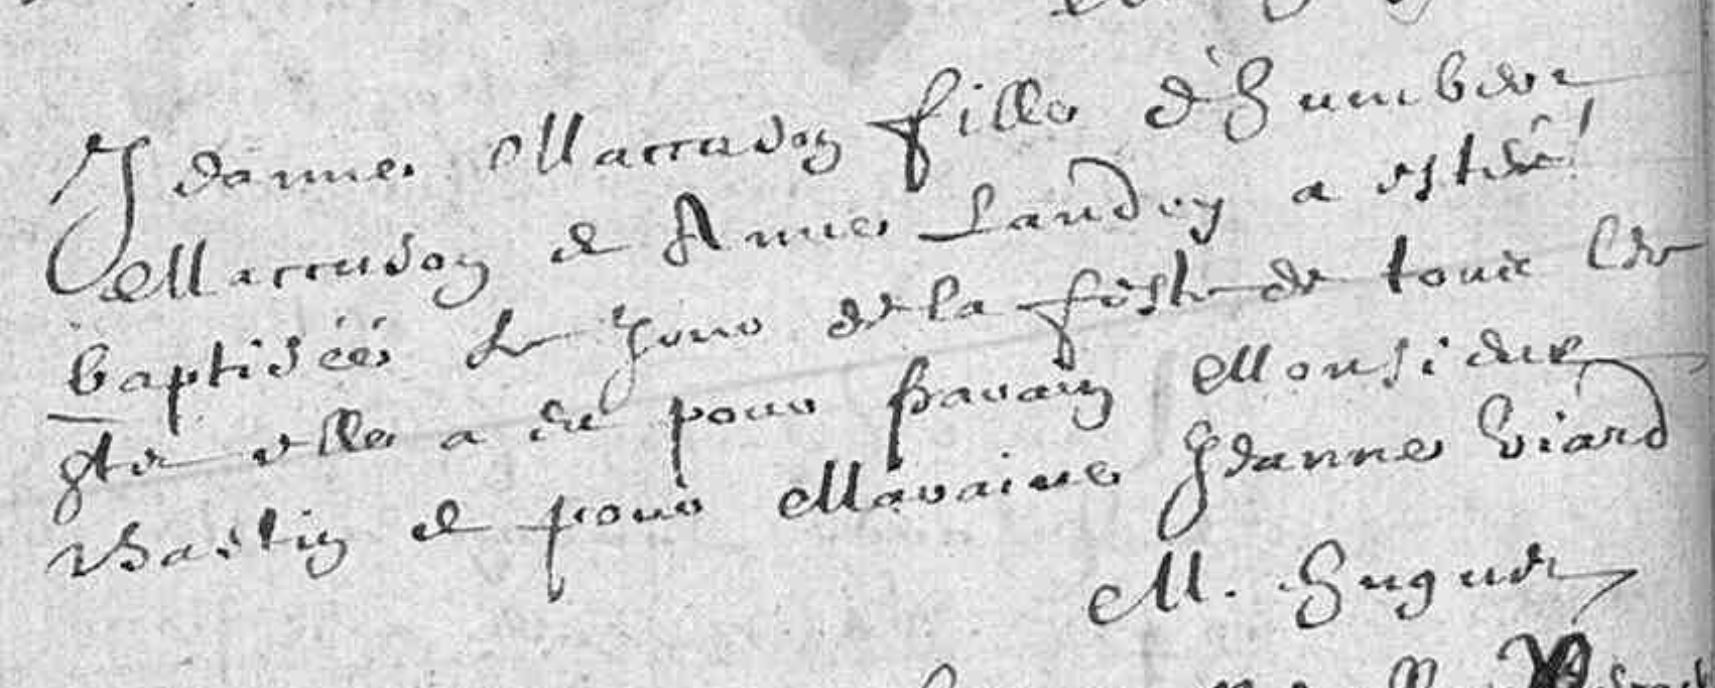 Jeanne Marcudey fille d'Humbert
Marcudey et Anne Landry a esté
baptisée le Jour de la feste de tous les
stz elle a eu pour parain Monsieur
Bastin et pour Maraine Jeanne Viard
M. Huguet